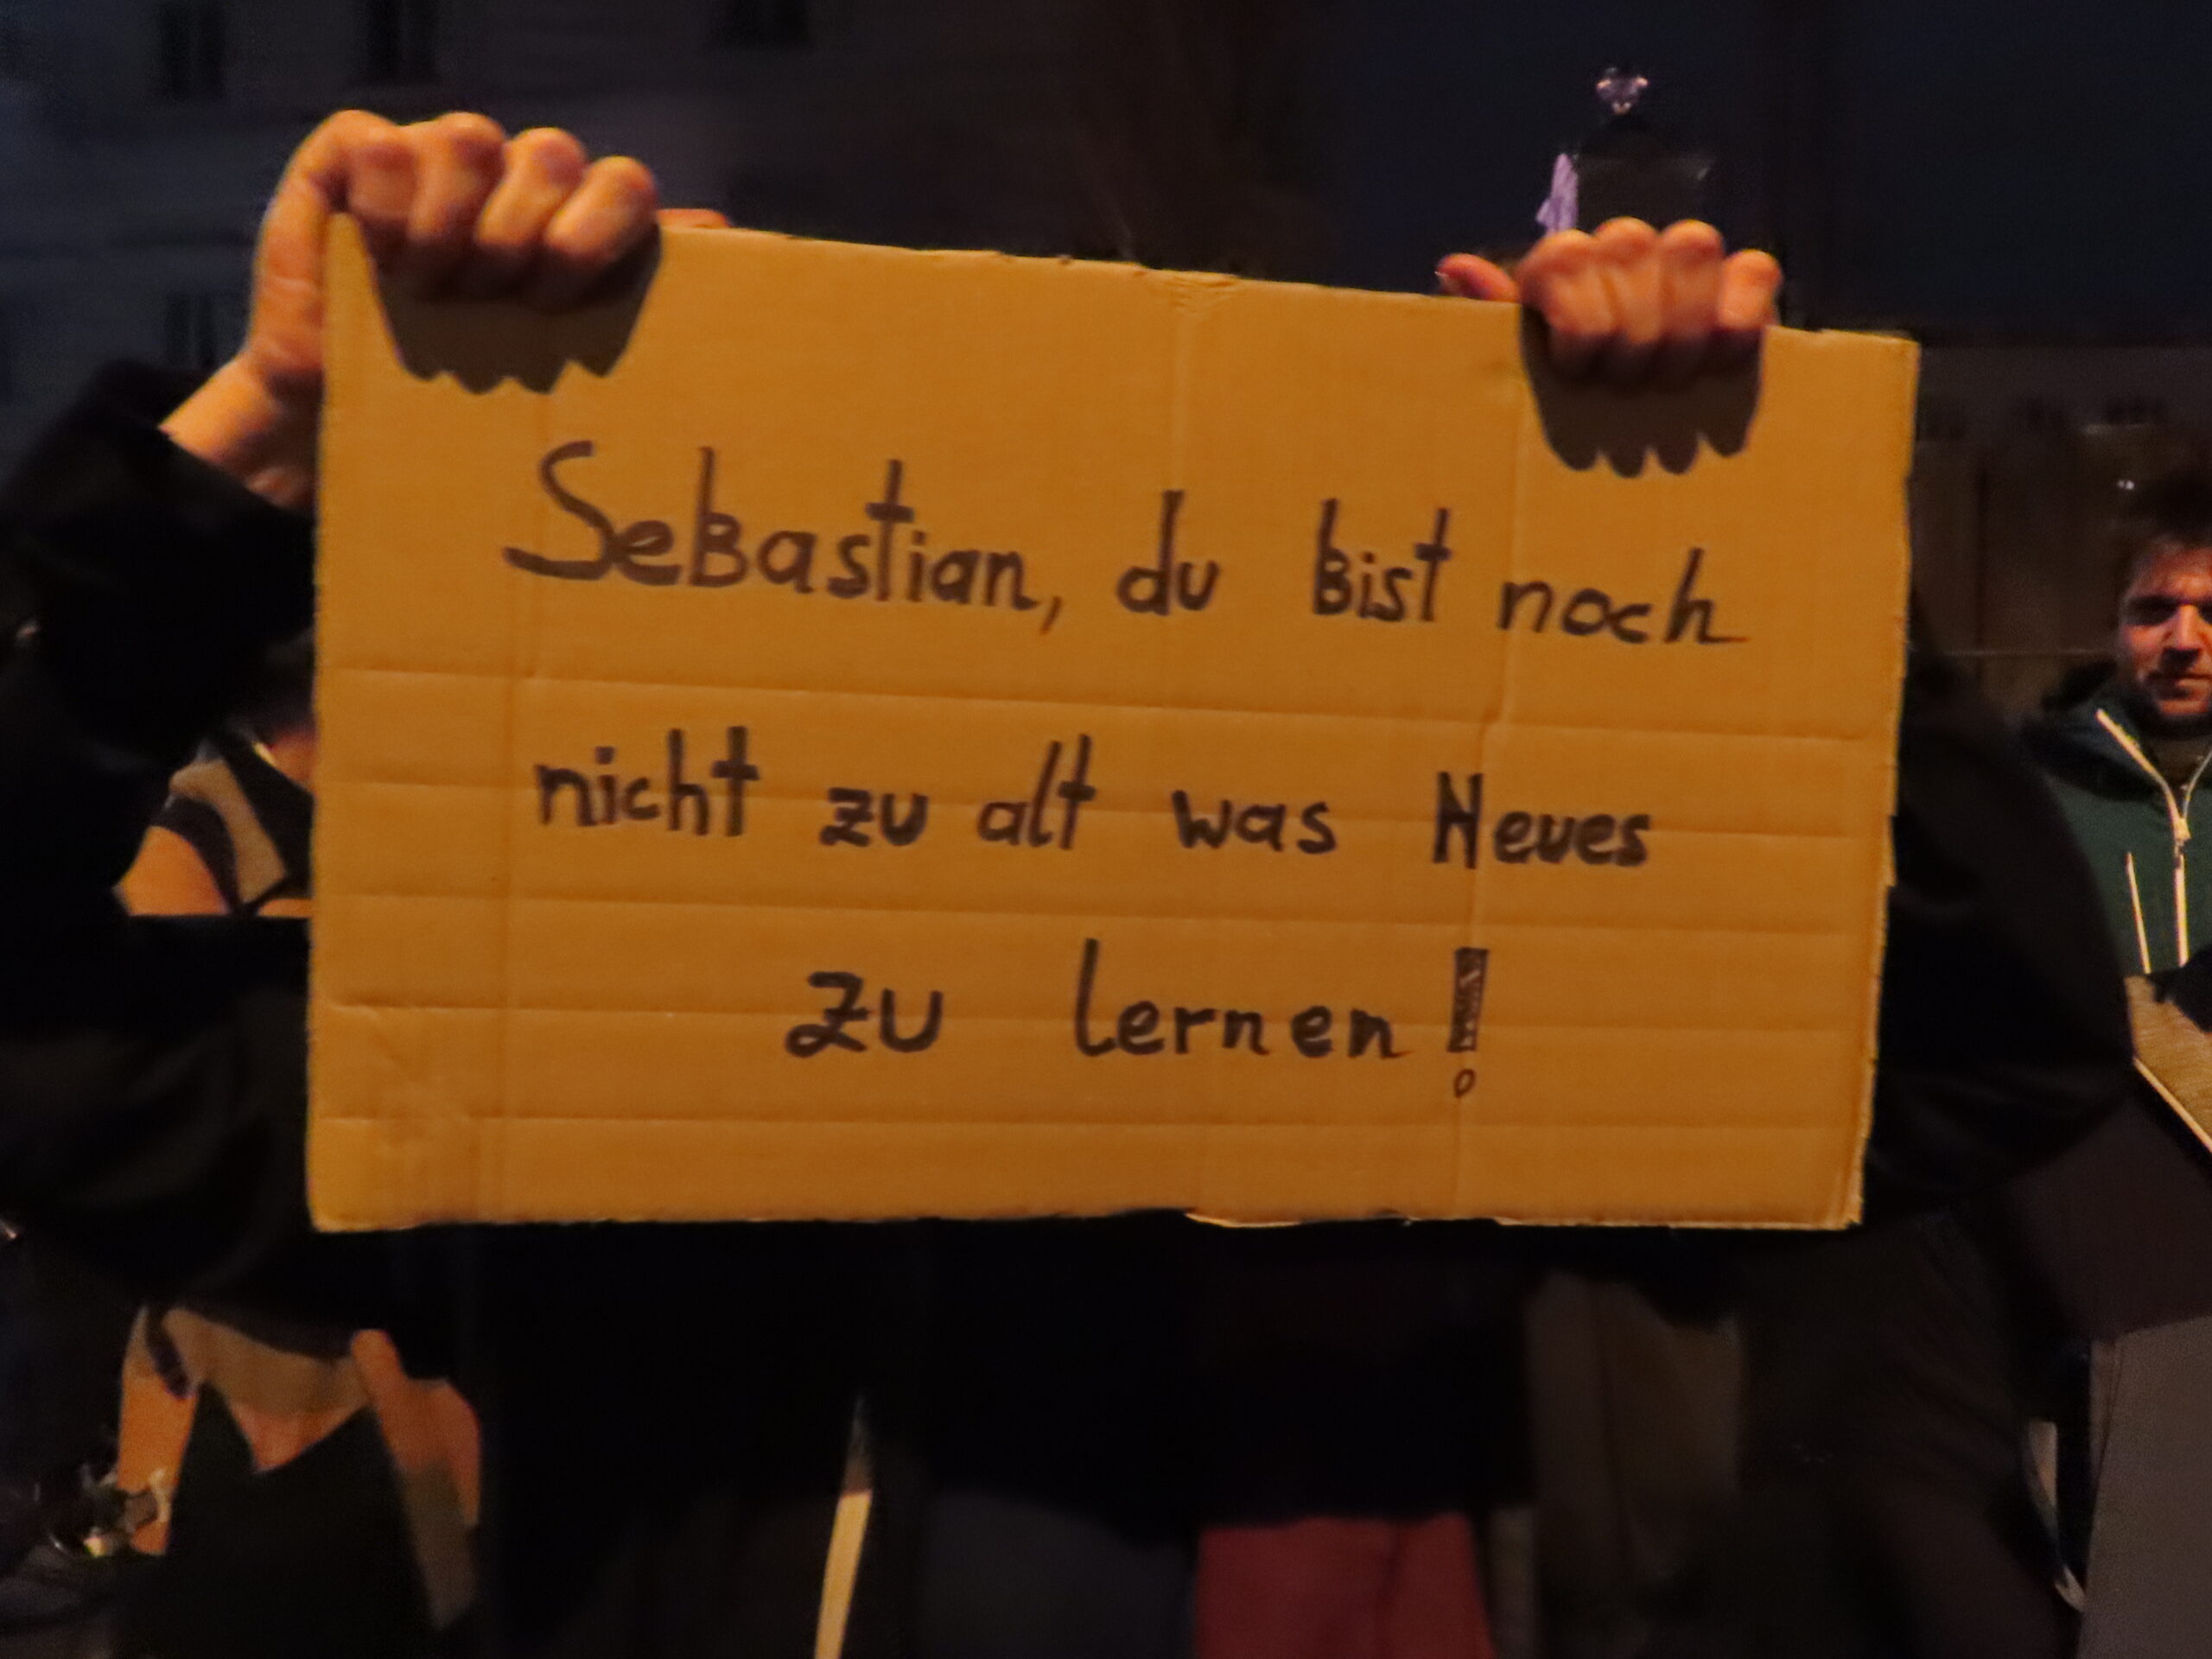 Sebastian, du bist noch
nicht zu alt was Neues
zu lernen!